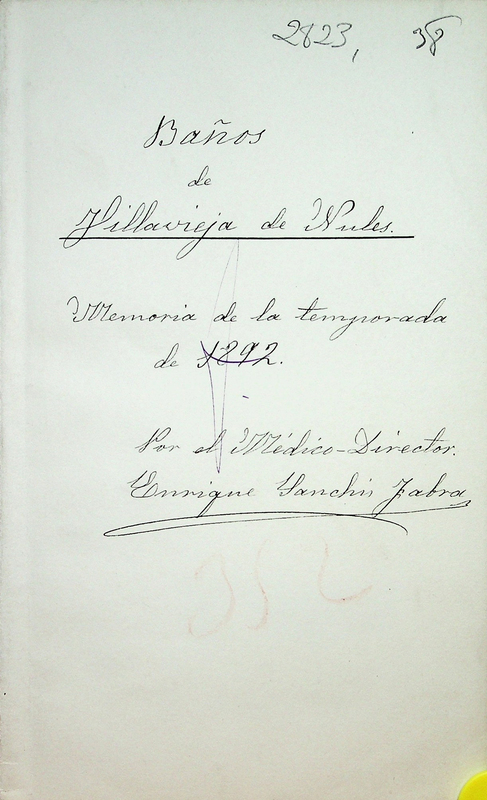 2823, 38
Baños
de
Villavieja de Nules.
Memoria de la temporada
de 1892.
Por el Médico-Director.
Enrique Sanchis Fabra
352